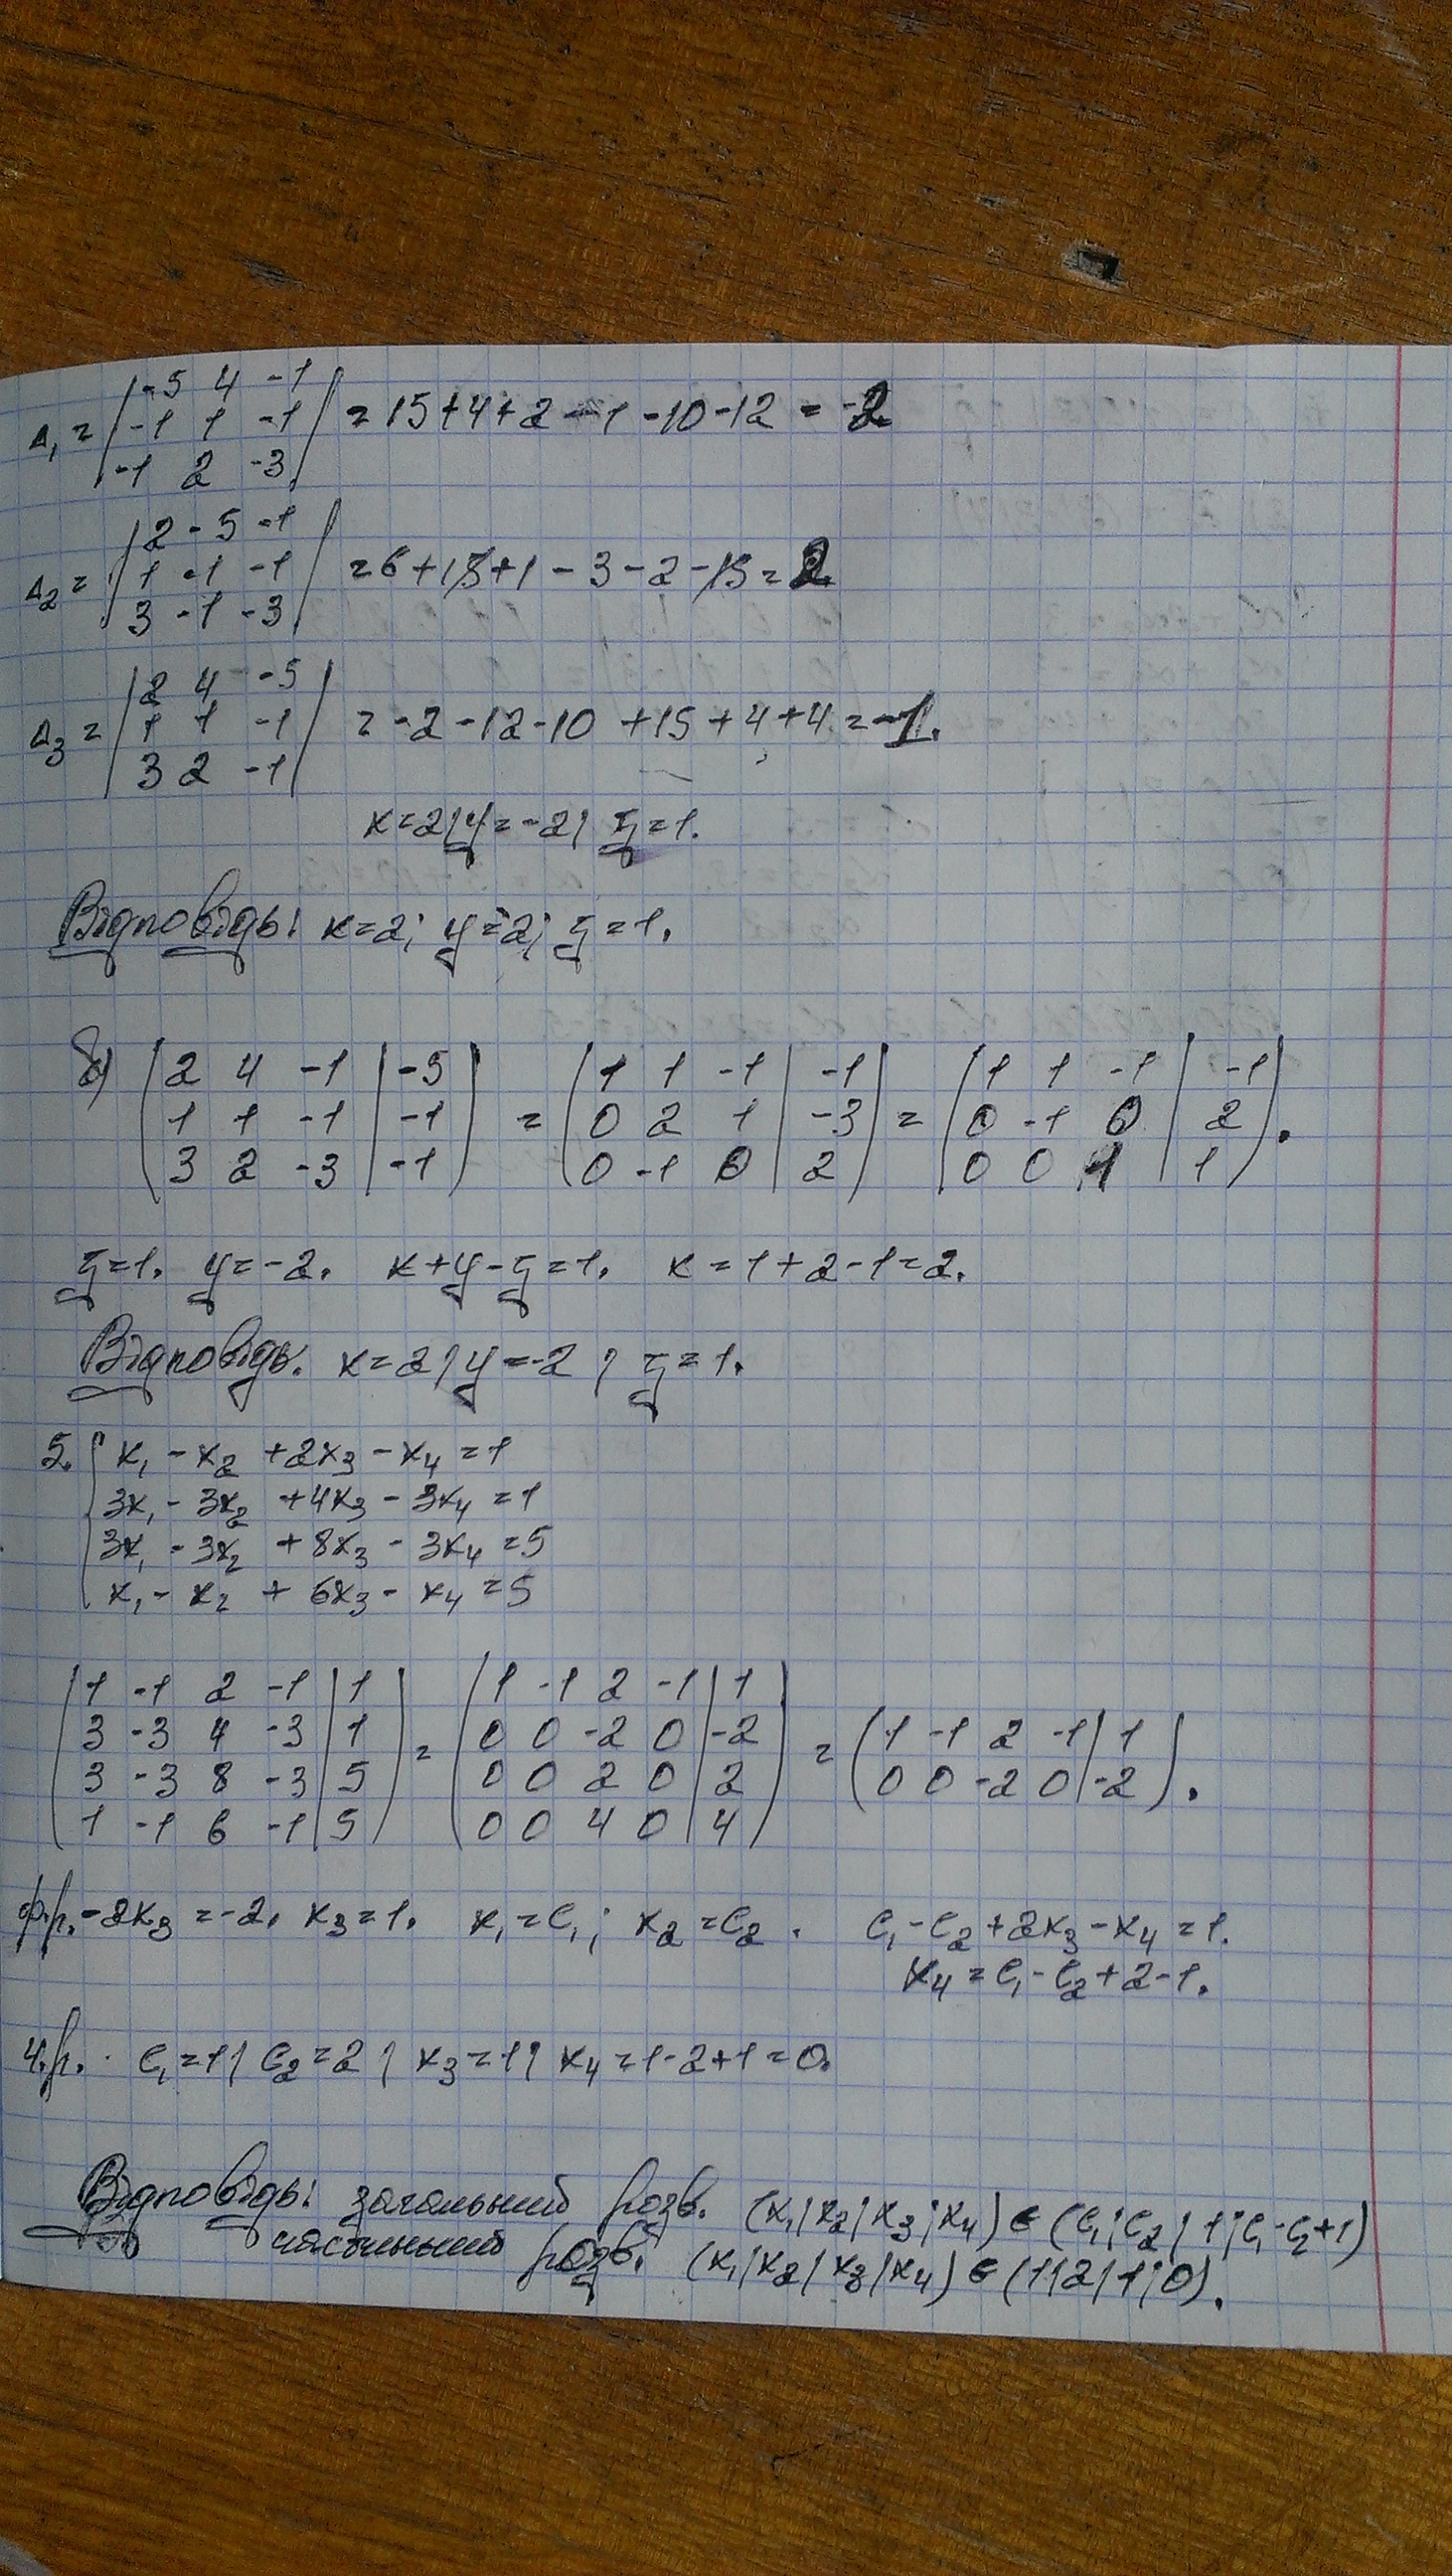 Δ₁ = | -5 4 -1 |
| -1 1 -1 | = 15+4+2-1-10-12 = -2
| -1 2 -3 |
Δ₂ = | 2 -5 -1 |
| 1 -1 -1 | = 6+15+1-3-2-15 = 2
| 3 -1 -3 |
Δ₃ = | 2 4 -5 |
| 1 1 -1 | = -2-12-10+15+4+4 = -1.
| 3 2 -1 |
x=2; y=-2; z=1.
Відповідь: x=2; y=-2; z=1.
б) ( 2 4 -1 | -5 ) ( 1 1 -1 | -1 ) ( 1 1 -1 | -1 )
( 1 1 -1 | -1 ) = ( 0 2 1 | -3 ) = ( 0 -1 0 | 2 ).
( 3 2 -3 | -1 ) ( 0 -1 0 | 2 ) ( 0 0 1 | 1 )
z=1. y=-2. x+y-z=1. x=1+2-1=2.
Відповідь. x=2; y=-2; z=1.
5. { x₁ - x₂ + 2x₃ - x₄ = 1
3x₁ - 3x₂ + 4x₃ - 3x₄ = 1
3x₁ - 3x₂ + 8x₃ - 3x₄ = 5
x₁ - x₂ + 6x₃ - x₄ = 5
( 1 -1 2 -1 | 1 ) ( 1 -1 2 -1 | 1 )
( 3 -3 4 -3 | 1 ) = ( 0 0 -2 0 | -2 ) = ( 1 -1 2 -1 | 1 )
( 3 -3 8 -3 | 5 ) ( 0 0 2 0 | 2 ) ( 0 0 -2 0 | -2 ).
( 1 -1 6 -1 | 5 ) ( 0 0 4 0 | 4 )
ф.р. -2x₃ = -2. x₃ = 1. x₁ = c₁; x₂ = c₂. c₁ - c₂ + 2x₃ - x₄ = 1.
x₄ = c₁ - c₂ + 2 - 1.
ч.р. c₁ = 1; c₂ = 2; x₃ = 1; x₄ = 1-2+1 = 0.
Відповідь: загальний розв. (x₁; x₂; x₃; x₄) ∈ (c₁; c₂; 1; c₁-c₂+1)
частинний розв. (x₁; x₂; x₃; x₄) ∈ (1; 2; 1; 0).